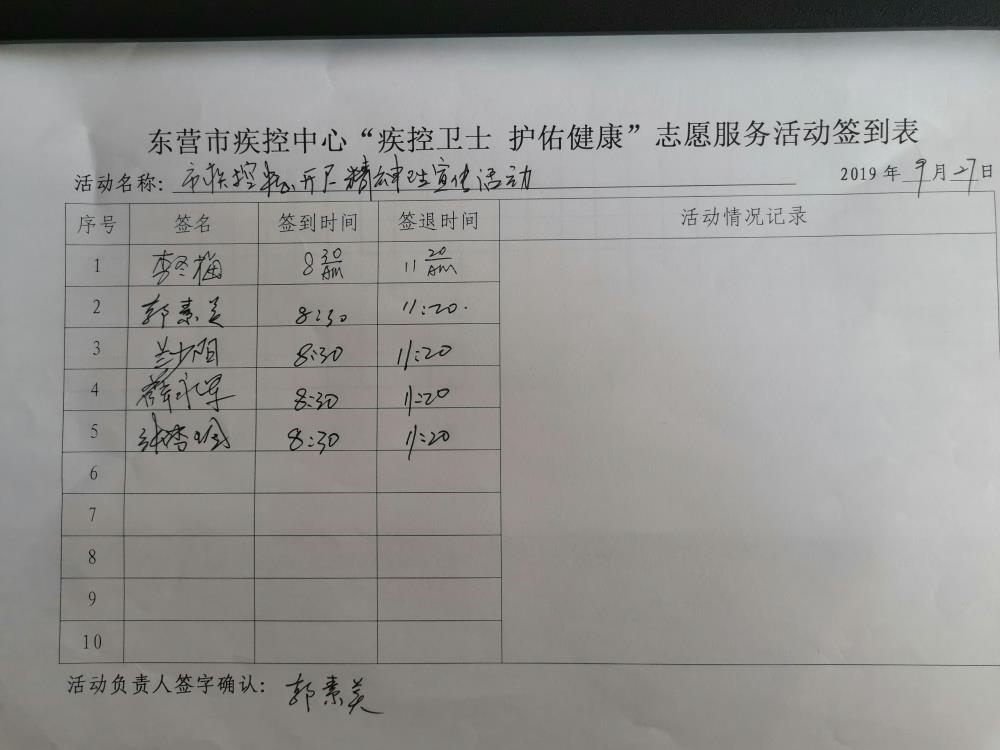 东营市疾控中心“疾控卫士 护佑健康”志愿服务活动签到表
活动名称：市疾控中心开展精神卫生宣传活动 2019年9月27日
序号 签名 签到时间 签退时间 活动情况记录
1 李冬梅 8 30 AM 11 20 AM
2 郭素美 8:30 11:20.
3 兰少阳 8:30 11:20
4 薛永军 8:30 11:20
5 8:30 11:20
6
7
8
9
10
活动负责人签字确认：郭素美